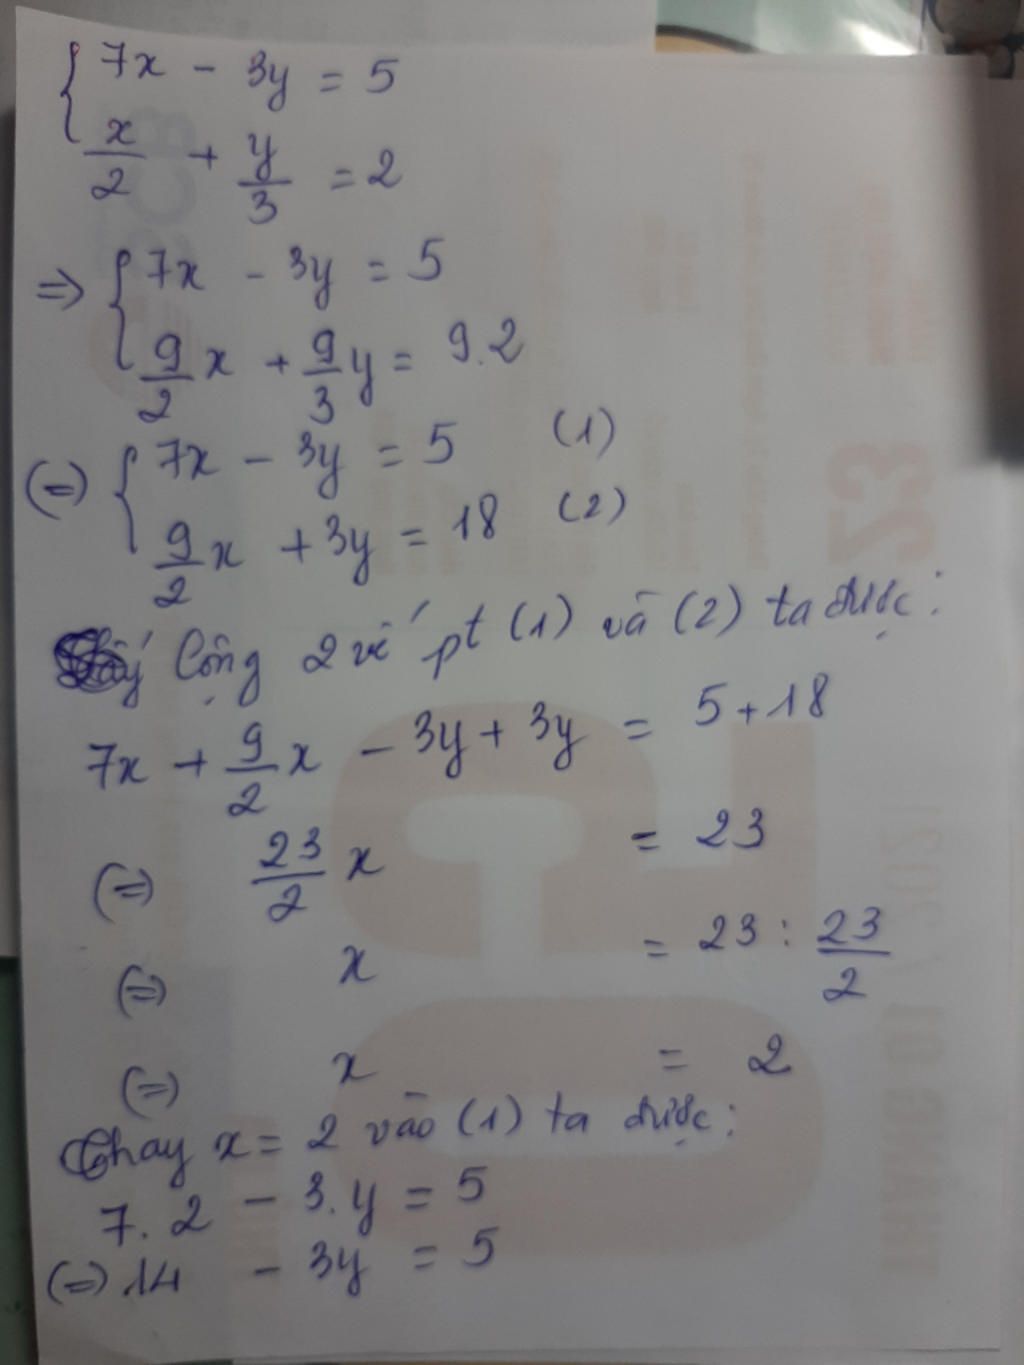 { 7x - 3y = 5
x/2 + y/3 = 2
=> { 7x - 3y = 5
9/2 x + 9/3 y = 9.2
(=) { 7x - 3y = 5 (1)
9/2 x + 3y = 18 (2)
Cộng 2 vế pt (1) và (2) ta được:
7x + 9/2 x - 3y + 3y = 5 + 18
(=) 23/2 x = 23
(=) x = 23 : 23/2
(=) x = 2
Thay x = 2 vào (1) ta được:
7. 2 - 3. y = 5
(=) 14 - 3y = 5